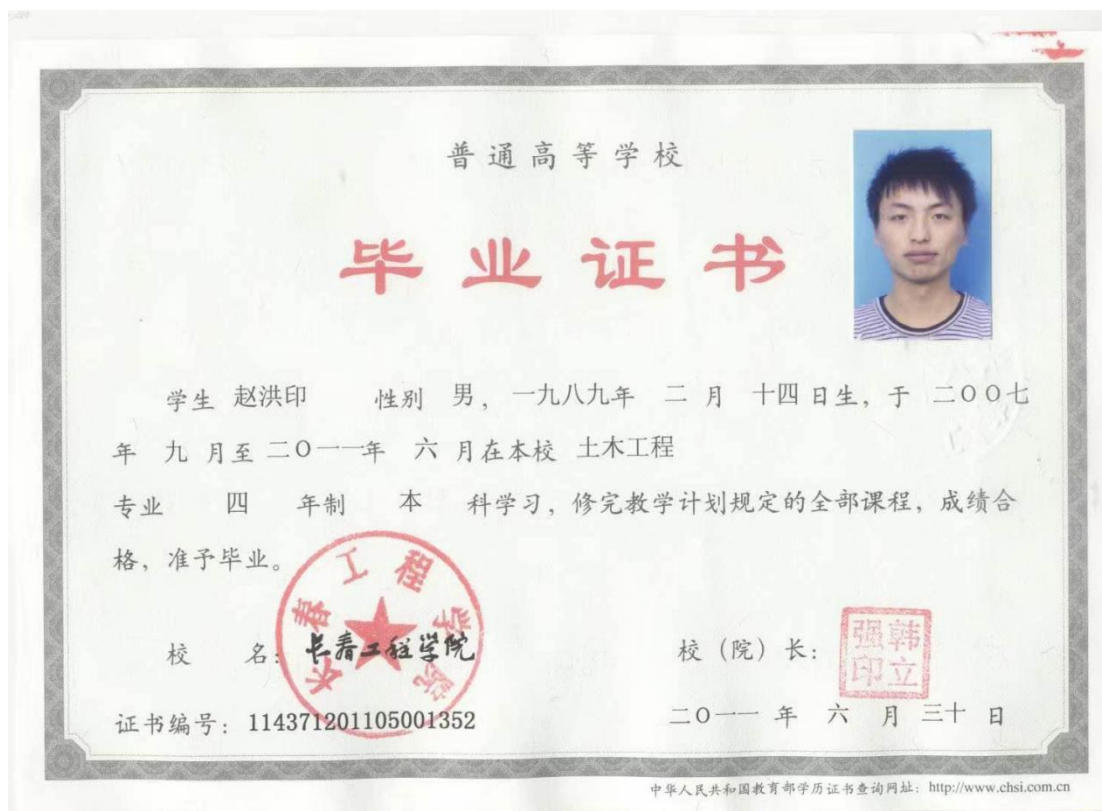 普通高等学校
毕业证书
学生 赵洪印 性别 男，一九八九年 二 月 十四 日生，于 二00七
年 九 月至 二0一一年 六 月在本校 土木工程
专业 四 年制 本 科学习，修完教学计划规定的全部课程，成绩合
格，准予毕业。
长春工程学院
校 名：长春工程学院
校（院）长：
韩立强印
证书编号：114371201105001352
二0一一 年 六 月 三十 日
中华人民共和国教育部学历证书查询网址：http://www.chsi.com.cn